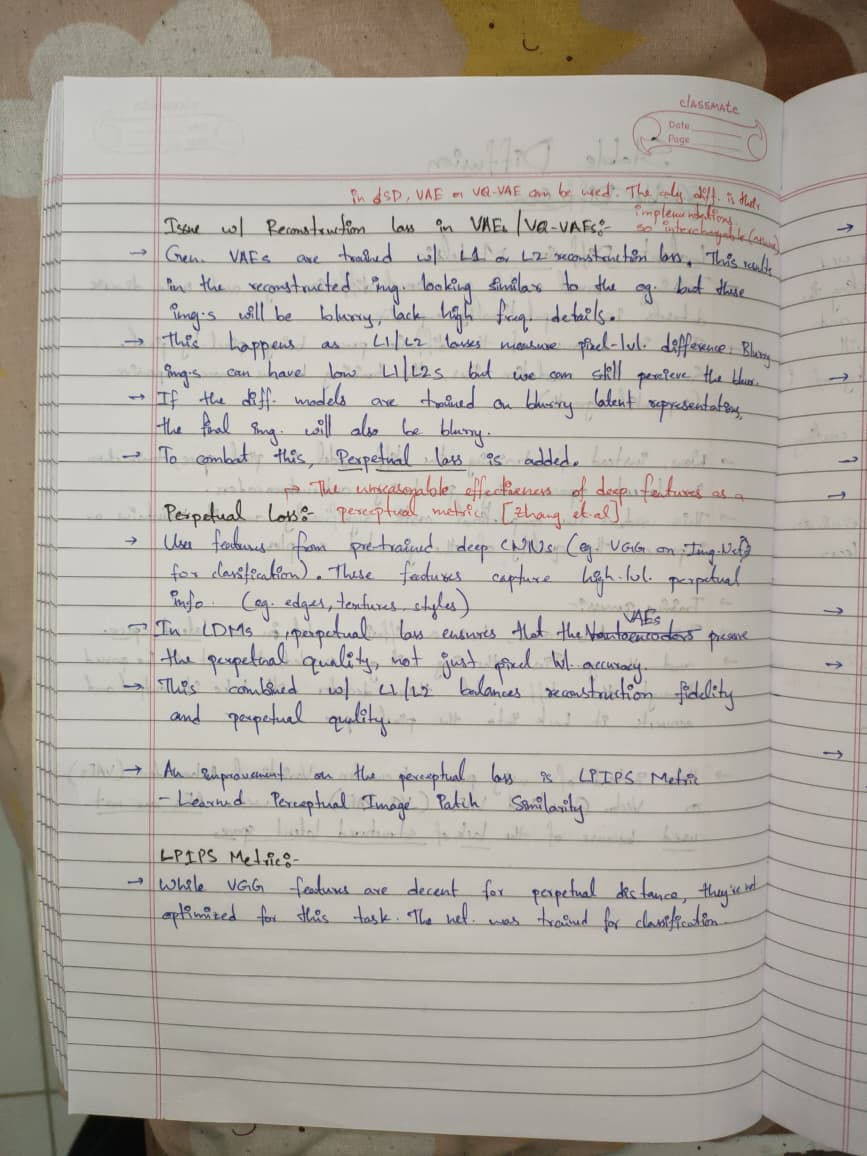 classmate
Date
Page
in dSD, VAE or VQ-VAE can be used. The only diff. is their
implementations.
so interchangable
Issue w/ Reconstruction loss in VAEs/VQ-VAEs:-
→ Gen. VAEs are trained w/ L1 or L2 reconstruction loss. This results
in the reconstructed img. looking similar to the og. but these
img.s will be blurry, lack high freq. details.
→ This happens as L1/L2 losses measure pixel-lvl. difference. Blurry
img.s can have low L1/L2s but we can still percieve the blur.
→ If the diff. models are trained on blurry latent representation,
the final img. will also be blurry.
→ To combat this, Perpetual loss is added.
→ The unreasonable effectiveness of deep features as a
Perpetual Loss:- perceptual metric. [Zhang et.al]
→ Uses features from pre-trained deep CNNs (eg. VGG on Img.Net
for clasification). These features capture high-lvl. perpetual
info. (eg. edges, textures, styles)
VAEs
→ In LDMs, perpetual loss ensures that the presave
the perpetual quality, not just pixel lvl. accuracy.
→ This combined w/ L1/L2 balances reconstruction fidelity
and perpetual quality.
→ An improvement on the perceptual loss is LPIPS Metric
- Learned Perceptual Image Patch Similarity
LPIPS Metric:-
→ While VGG features are decent for perpetual distance, they're not
optimized for this task. The net. was trained for classification.